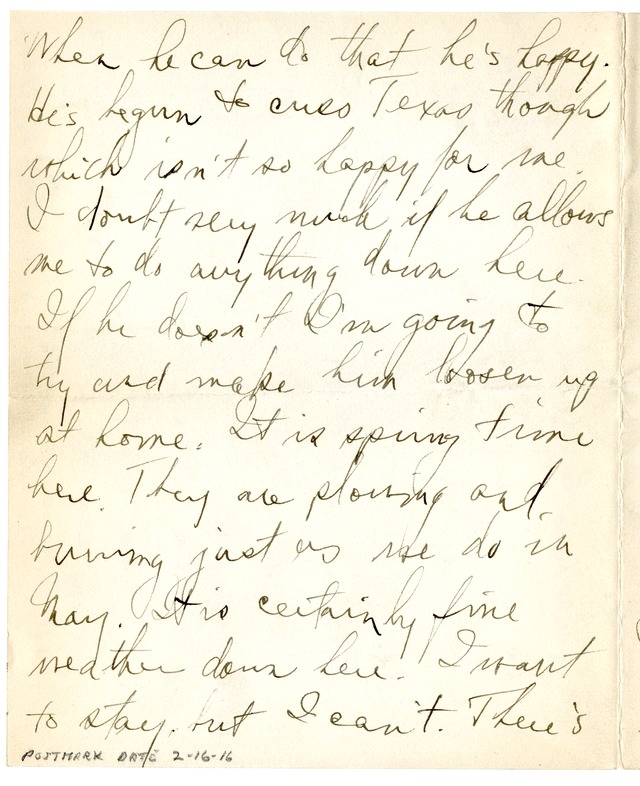 When he can do that he's happy.
He's begun to cuss Texas though
which isn't so happy for me.
I doubt very much if he allows
me to do anything down here.
If he doesn't I'm going to
try and make him loosen up
at home. It is spring time
here. They are plowing and
burning just as we do in
May. It is certainly fine
weather down here. I want
to stay, but I can't. There's
POSTMARK DATE 2-16-16